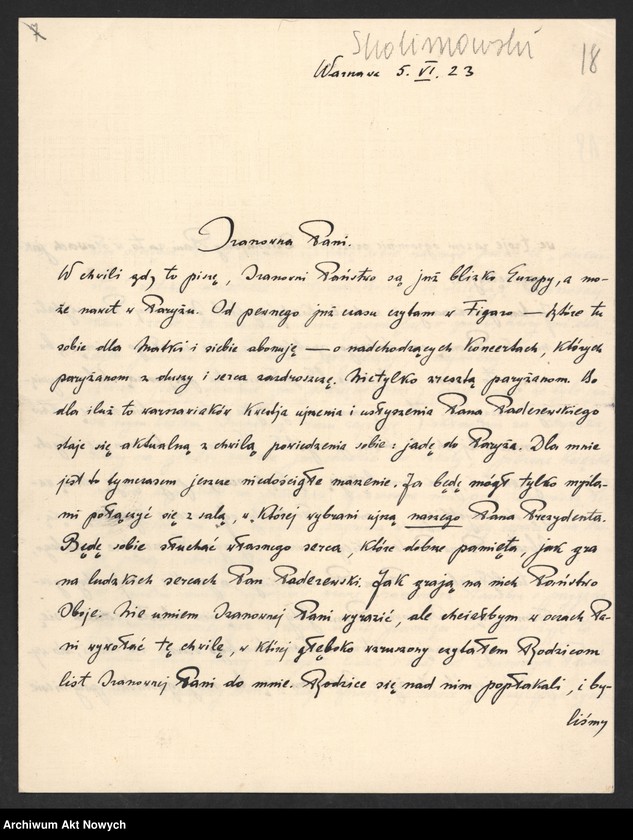 7
Skolimowski
18
Warszawa 5. VI. 23
Szanowna Pani.
W chwili gdy to piszę, Szanowni Państwo są już blizko Europy, a mo-
że nawet w Paryżu. Od pewnego już czasu czytam w Figaro — które tu
sobie dla Matki i siebie abonuję — o nadchodzących Koncertach, których
paryżanom z duszy i serca zazdroszczę. Nietylko zresztą paryżanom. Bo
dla iluż to warszawiaków kwestja ujrzenia i usłyszenia Pana Paderewskiego
staje się aktualną z chwilą powiedzenia sobie: jadę do Paryża. Dla mnie
jest to tymczasem jeszcze niedościgłe marzenie. Ja będę mógł tylko myśla-
mi połączyć się z salą, w której wybrani ujrzą naszego Pana Prezydenta.
Będę sobie słuchać własnego serca, które dobrze pamięta, jak gra
na ludzkich sercach Pan Paderewski. Jak grają na nich Państwo
Oboje. Nie umiem Szanownej Pani wyrazić, ale chciałbym w oczach Pa-
ni wywołać tę chwilę, w której głęboko wzruszony czytałem Rodzicom
list Szanownej Pani do mnie. Rodzice się nad nim popłakali, i by-
liśmy
Archiwum Akt Nowych